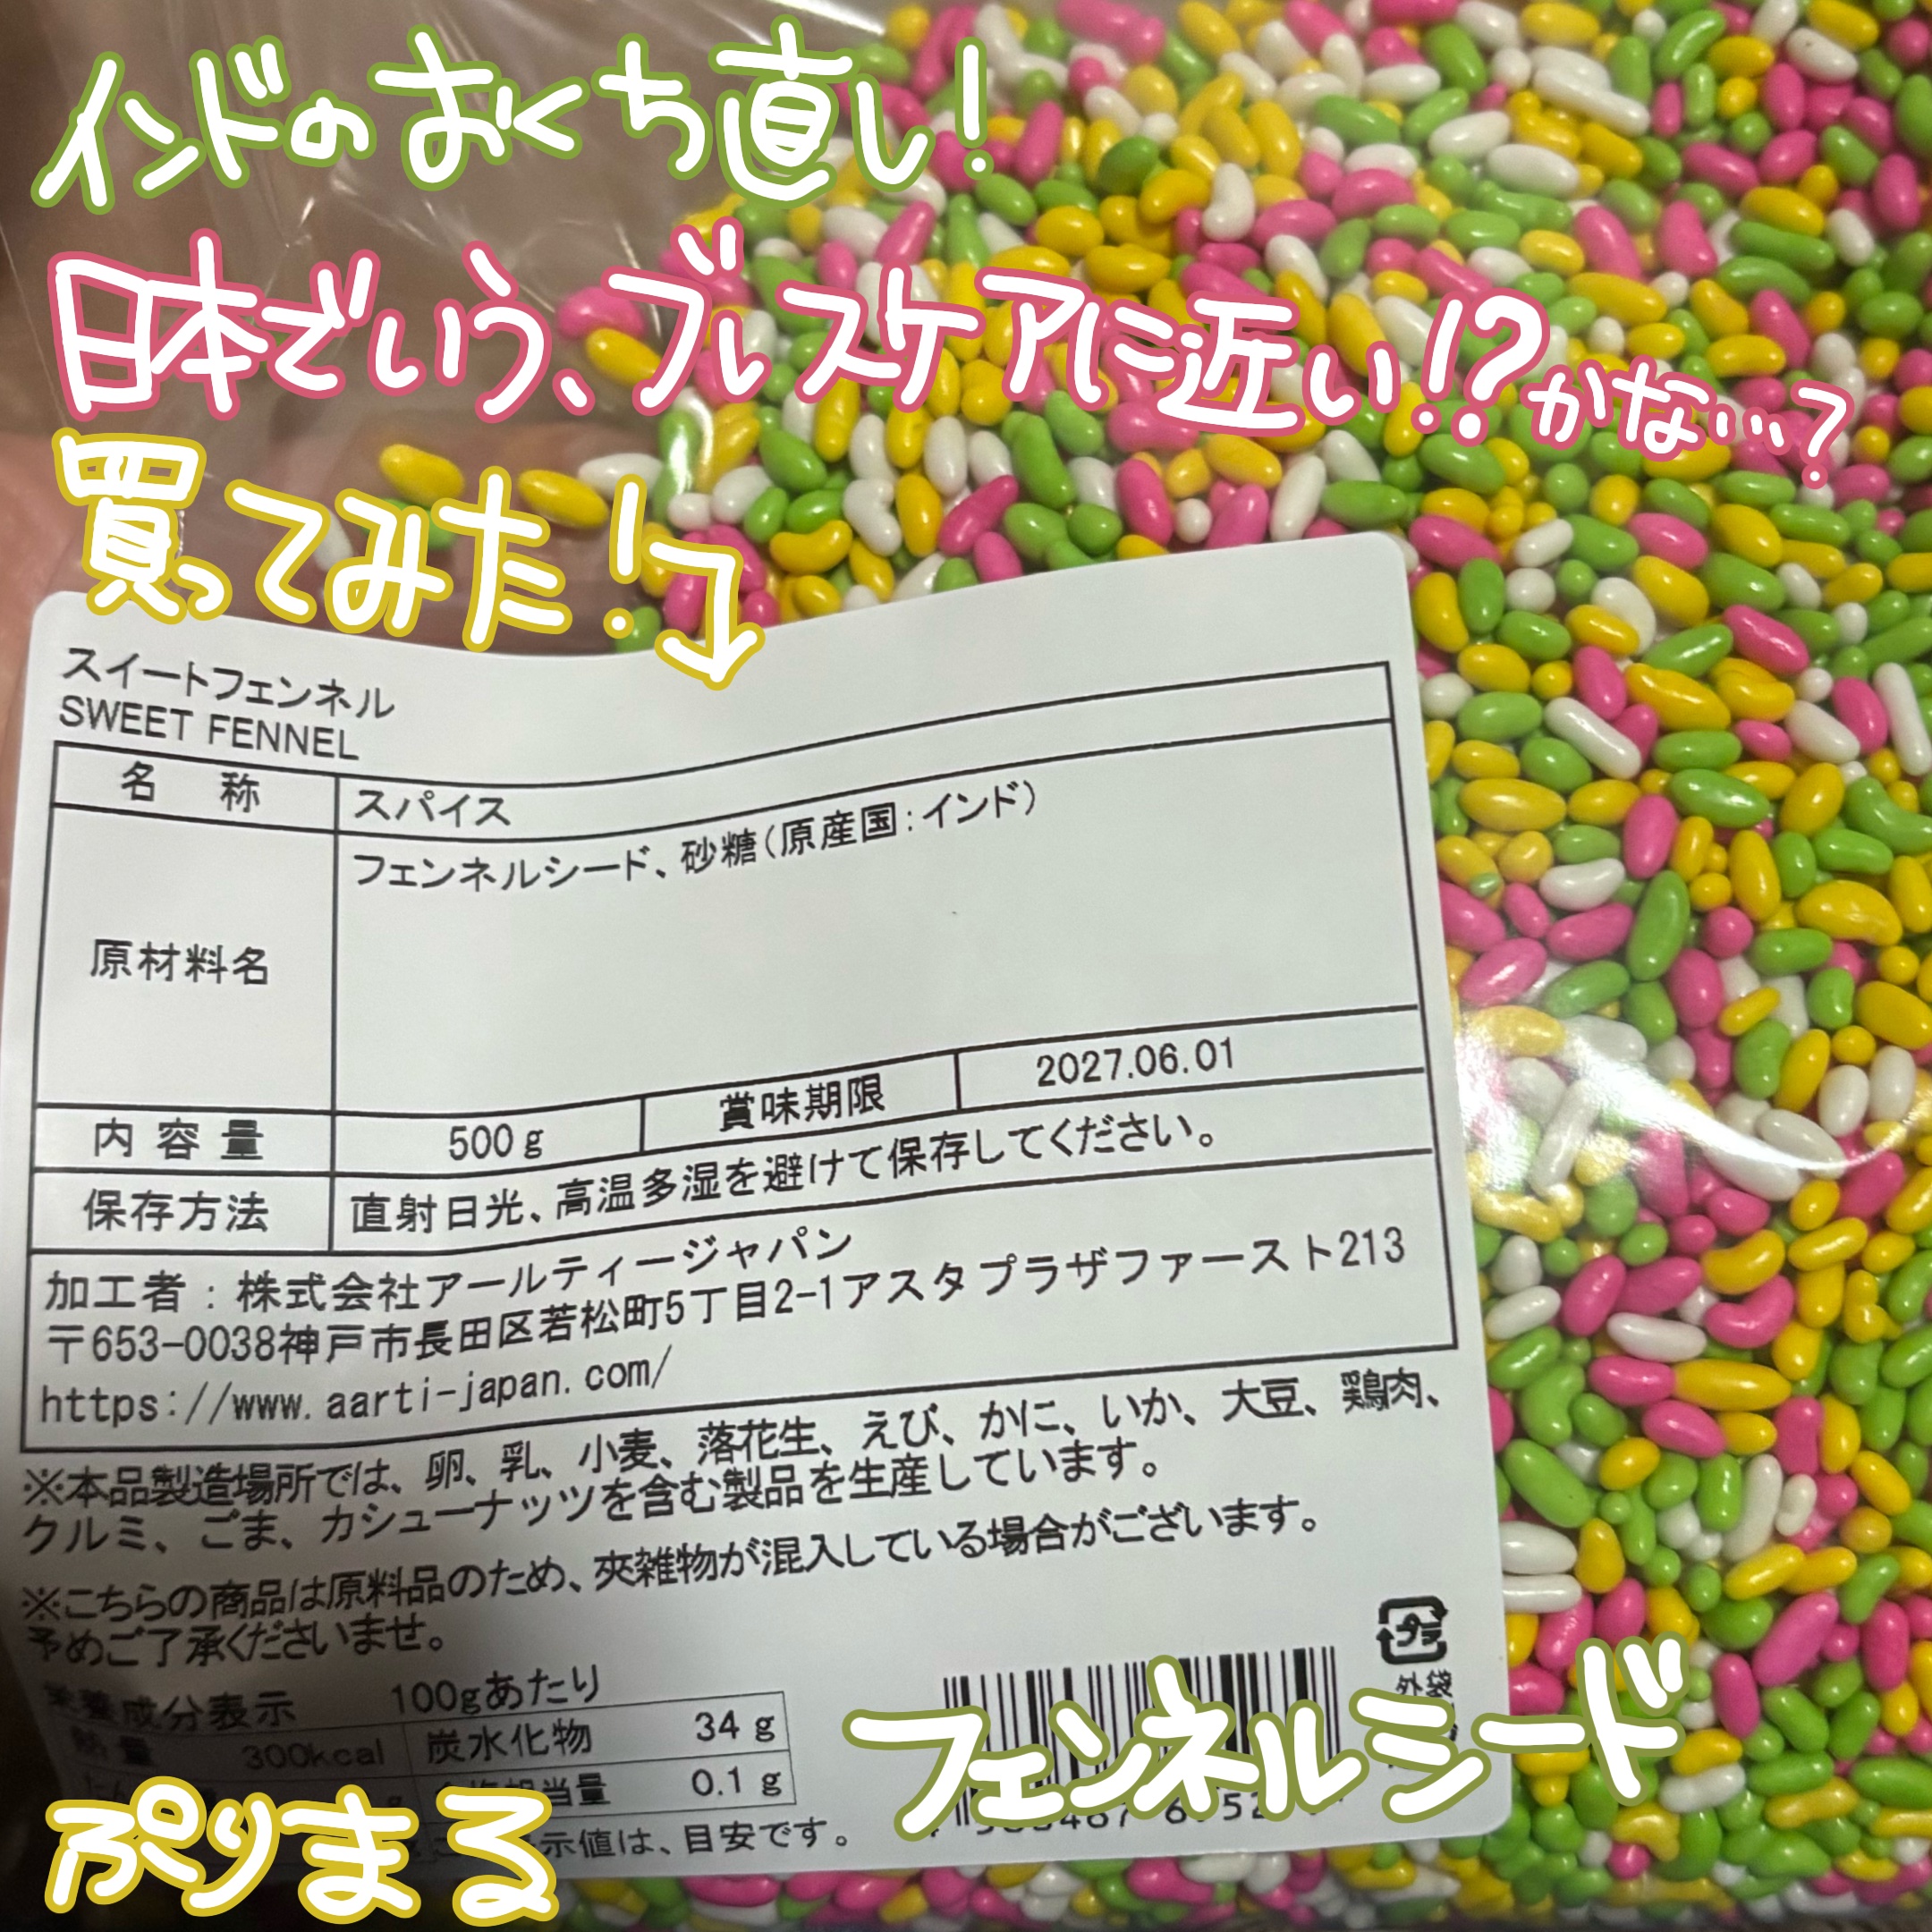 インドのおくち直し!
日本でいう、ブレスケアに近い!?かな…?
買ってみた!
スイートフェンネル
SWEET FENNEL
名 称 スパイス
原材料名 フェンネルシード、砂糖(原産国:インド)
内容量 500g 賞味期限 2027.06.01
保存方法 直射日光、高温多湿を避けて保存してください。
加工者:株式会社アールティージャパン
〒653-0038神戸市長田区若松町5丁目2-1アスタプラザファースト213
https://www.aarti-japan.com/
※本品製造場所では、卵、乳、小麦、落花生、えび、かに、いか、大豆、鶏肉、
クルミ、ごま、カシューナッツを含む製品を生産しています。
※こちらの商品は原料品のため、夾雑物が混入している場合がございます。
予めご了承くださいませ。
栄養成分表示 100gあたり
熱量 300kcal 炭水化物 34g
相当量 0.1g
示値は、目安です。
プラ
外袋
フェンネルシード
ぷりまる